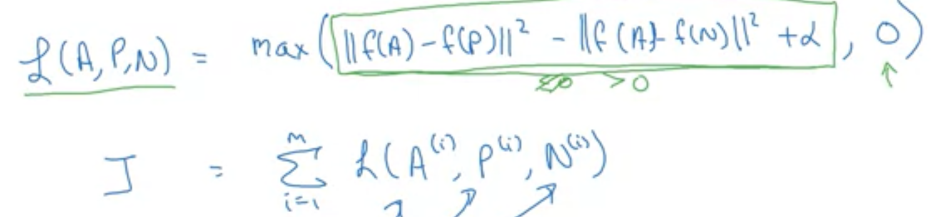 ℒ(A,P,N) = max(||f(A)-f(P)||² - ||f(A)-f(N)||² +α, 0)
≤0 >0 ↑
J = Σ_{i=1}^{m} ℒ(A⁽ⁱ⁾, P⁽ⁱ⁾, N⁽ⁱ⁾)